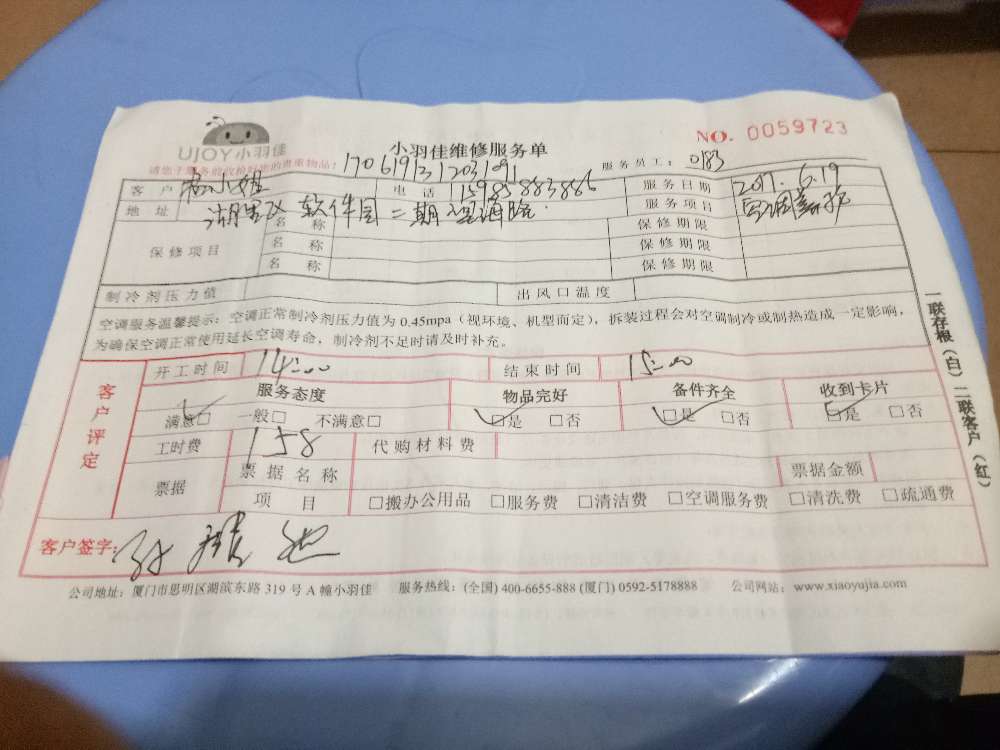 UJOY小羽佳
小羽佳维修服务单
NO. 0059723
服务员工: 0183
客户 小姐 电话 15985883886 服务日期 2017.6.19
地址 湖里区软件园二期望海路 服务项目 空调
保修项目 名称 保修期限
名称 保修期限
名称 保修期限
制冷剂压力值 出风口温度
空调服务温馨提示:空调正常制冷剂压力值为 0.45mpa(视环境、机型而定),拆装过程会对空调制冷或制热造成一定影响,
为确保空调正常使用延长空调寿命,制冷剂不足时请及时补充。
客户评定
开工时间 14:00 结束时间 15:00
服务态度 物品完好 备件齐全 收到卡片
满意□ 一般□ 不满意□ □是 □否 □是 □否 □是 □否
工时费 158 代购材料费
票据 票据名称 票据金额
项目 □搬办公用品 □服务费 □清洁费 □空调服务费 □清洗费 □疏通费
客户签字:
公司地址:厦门市思明区湖滨东路 319 号 A 幢小羽佳 服务热线:(全国) 400-6655-888 (厦门) 0592-5178888 公司网站:www.xiaoyujia.com
一联存根(白)二联客户(红)